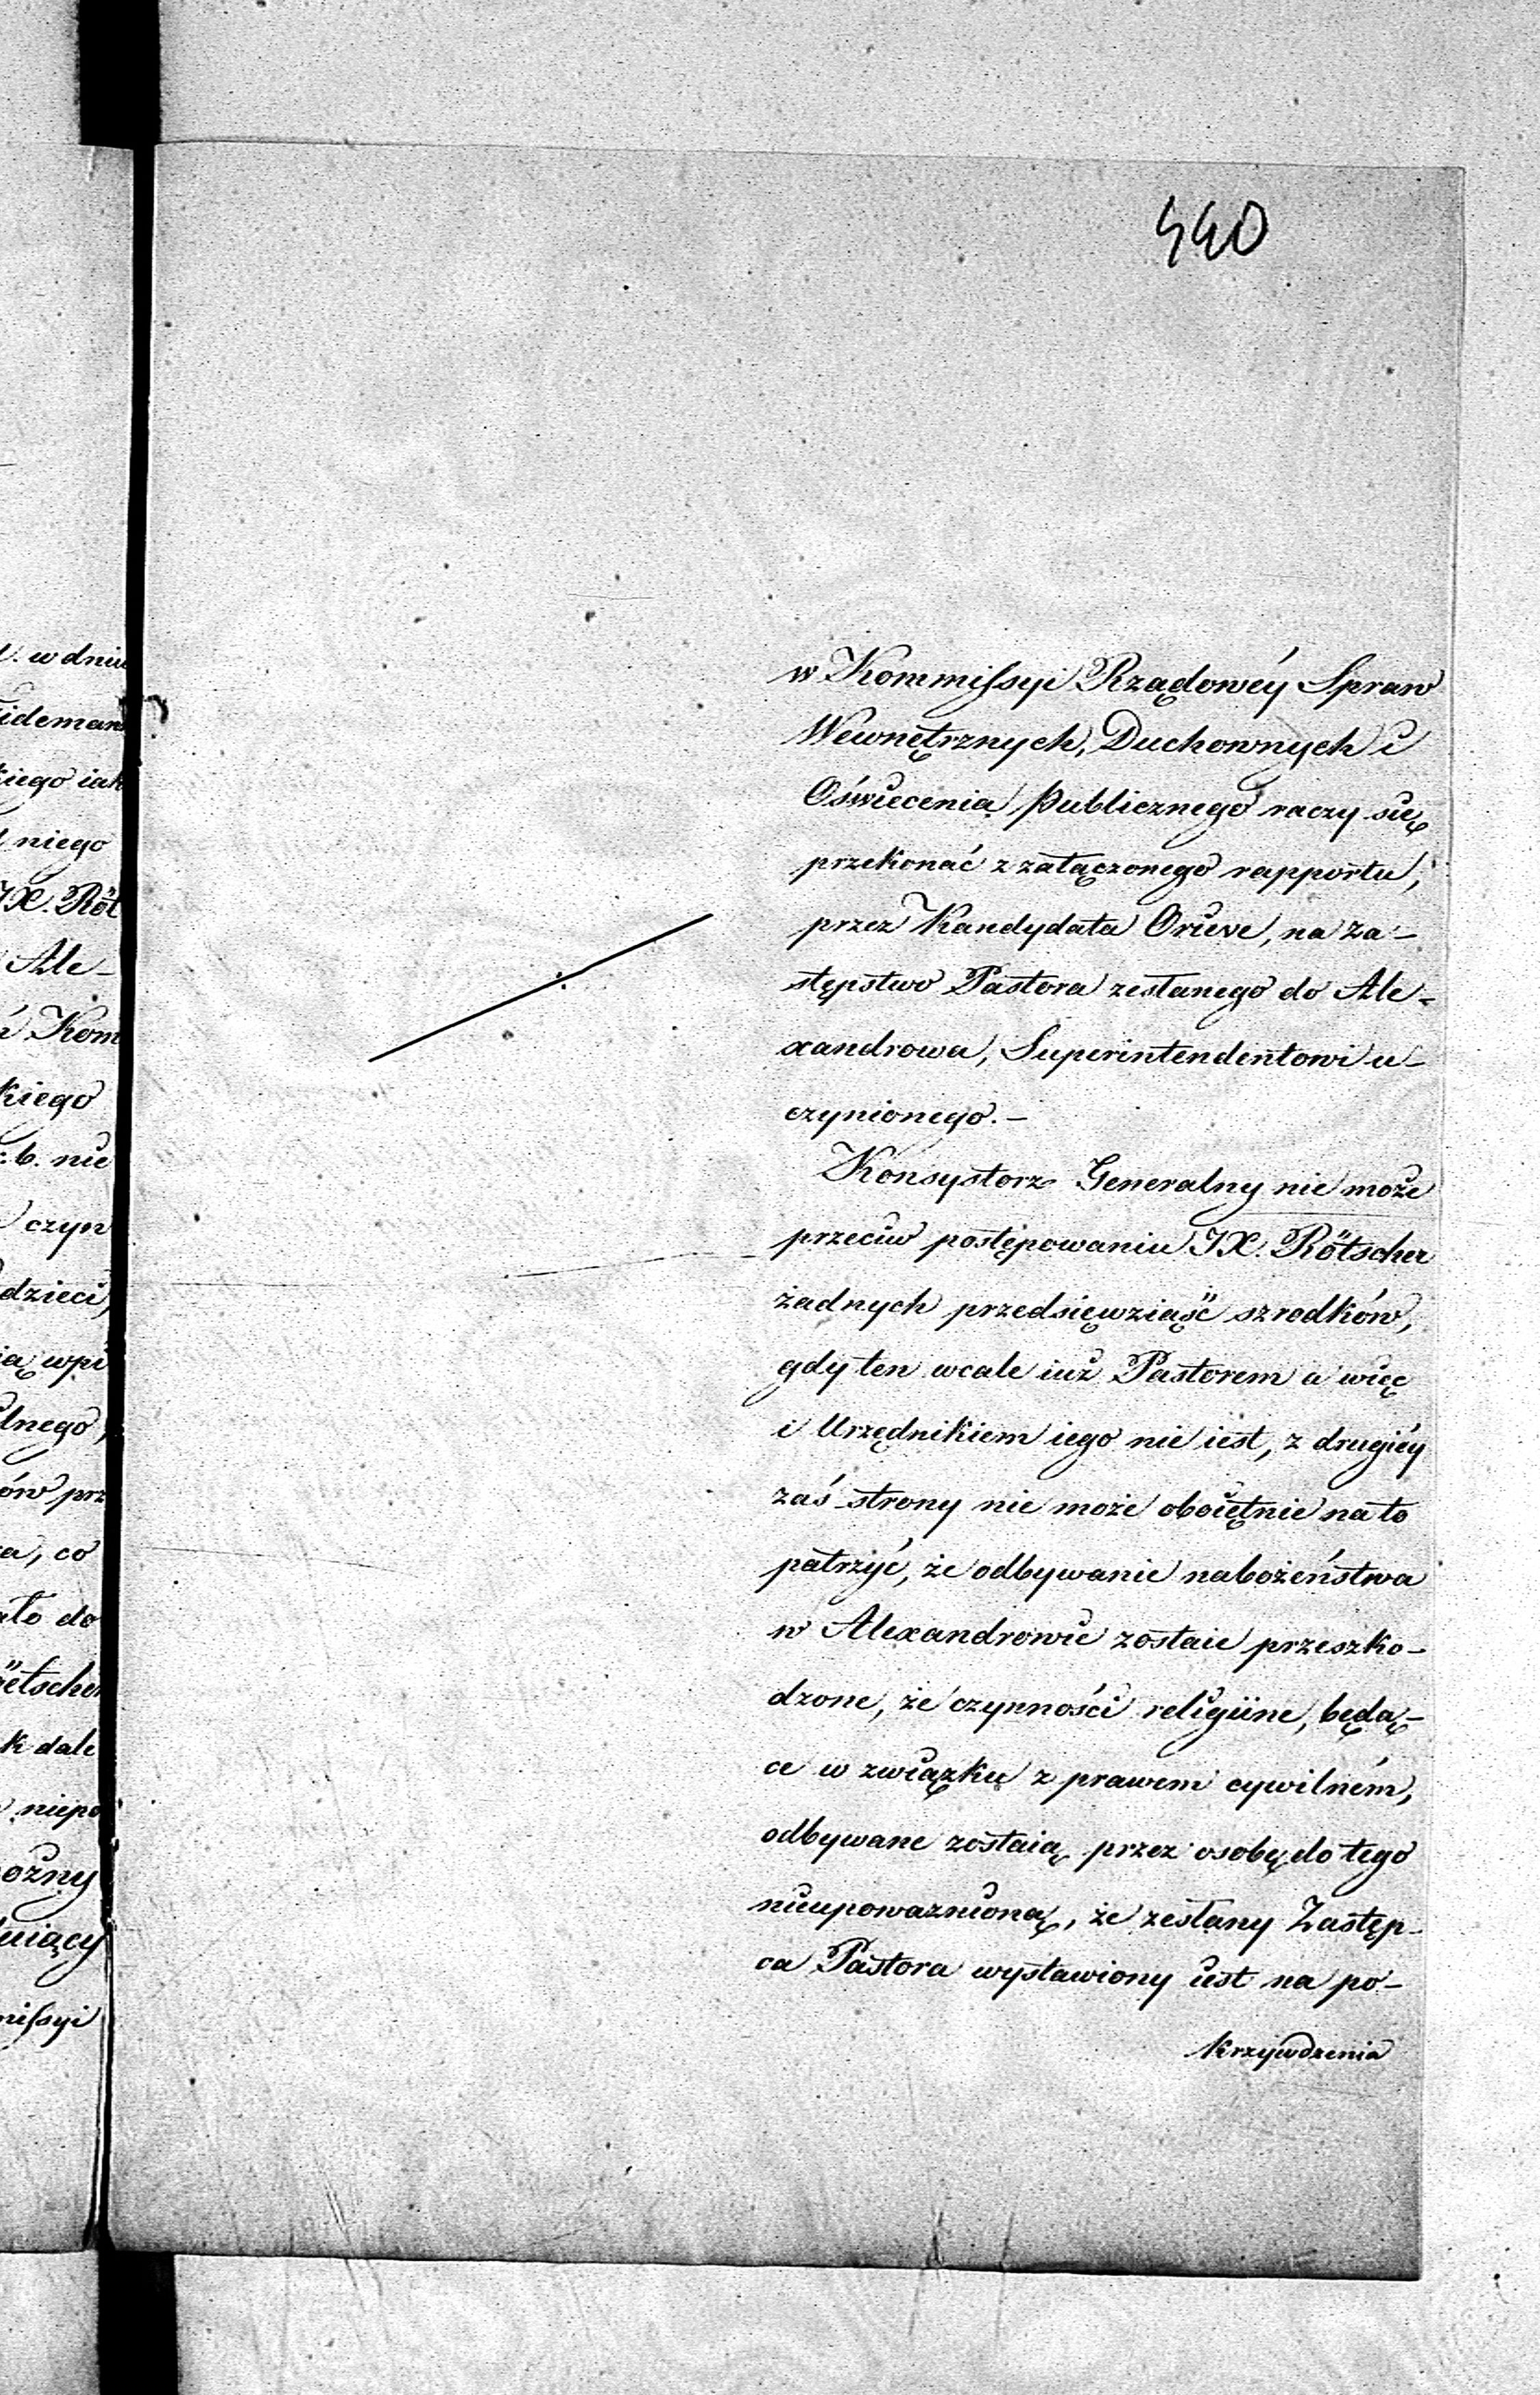 440
w Kommissyi Rządowéy Spraw
Wewnętrznych, Duchownych i
Oświecenia Publicznego raczy się
przekonać z załączonego rapportu,
przez Kandydata Oriese, na za-
stępstwo Pastora zesłanego do Ale-
xandrowa, Superintendentowi u-
czynionego.-
Konsystorz Generalny nie może
przeciw postępowaniu JX. Rötscher
żadnych przedsięwziąść szrodków,
gdy ten wcale iuż Pastorem a więc
i Urzędnikiem iego nie iest, z drugiéy
zaś strony nie może oboiętnie na to
patrzyć, że odbywanie nabożeństwa
w Alexandrowie zostaie przeszko-
dzone, że czynności religiine, będą-
ce w związku z prawem cywilném,
odbywane zostaią przez osobę do tego
nieupoważnioną, że zesłany Zastęp-
ca Pastora wystawiony iest na po-
krzywdzenia
w dniu
kiego iak
niego
JX. Röt
Ale-
Kom
kiego
nie
czyn
dzieci,
wpi
lnego,
prz
co
do
k dale
niepo